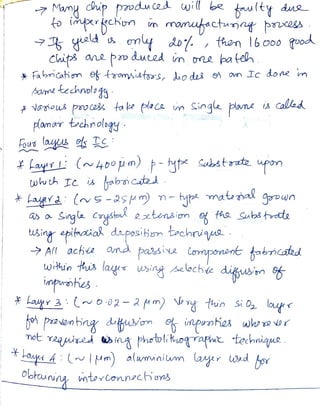 → Many chip produced will be faulty due
to imperfection in manufacturing process.
→ If yield is only 20%, then 16000 good
chips are produced in one batch.
* Fabrication of transistors, diodes on an IC done in
same technology.
* Various process take place in single plane is called
planar technology.
Four layers of IC:
* Layer 1: (~400μm) p-type substrate upon
which IC is fabricated.
* Layer 2: (~5-25μm) n-type material grown
as a single crystal extension of the substrate
using epitaxial deposition technique.
→ All active and passive component fabricated
within this layer using selective diffusion of
impurities.
* Layer 3: (~0.02-2μm) Very thin SiO2 layer
for preventing diffusion of impurities wherever
not required using photolithographic technique.
* Layer 4: (~1μm) aluminium layer used for
obtaining interconnections